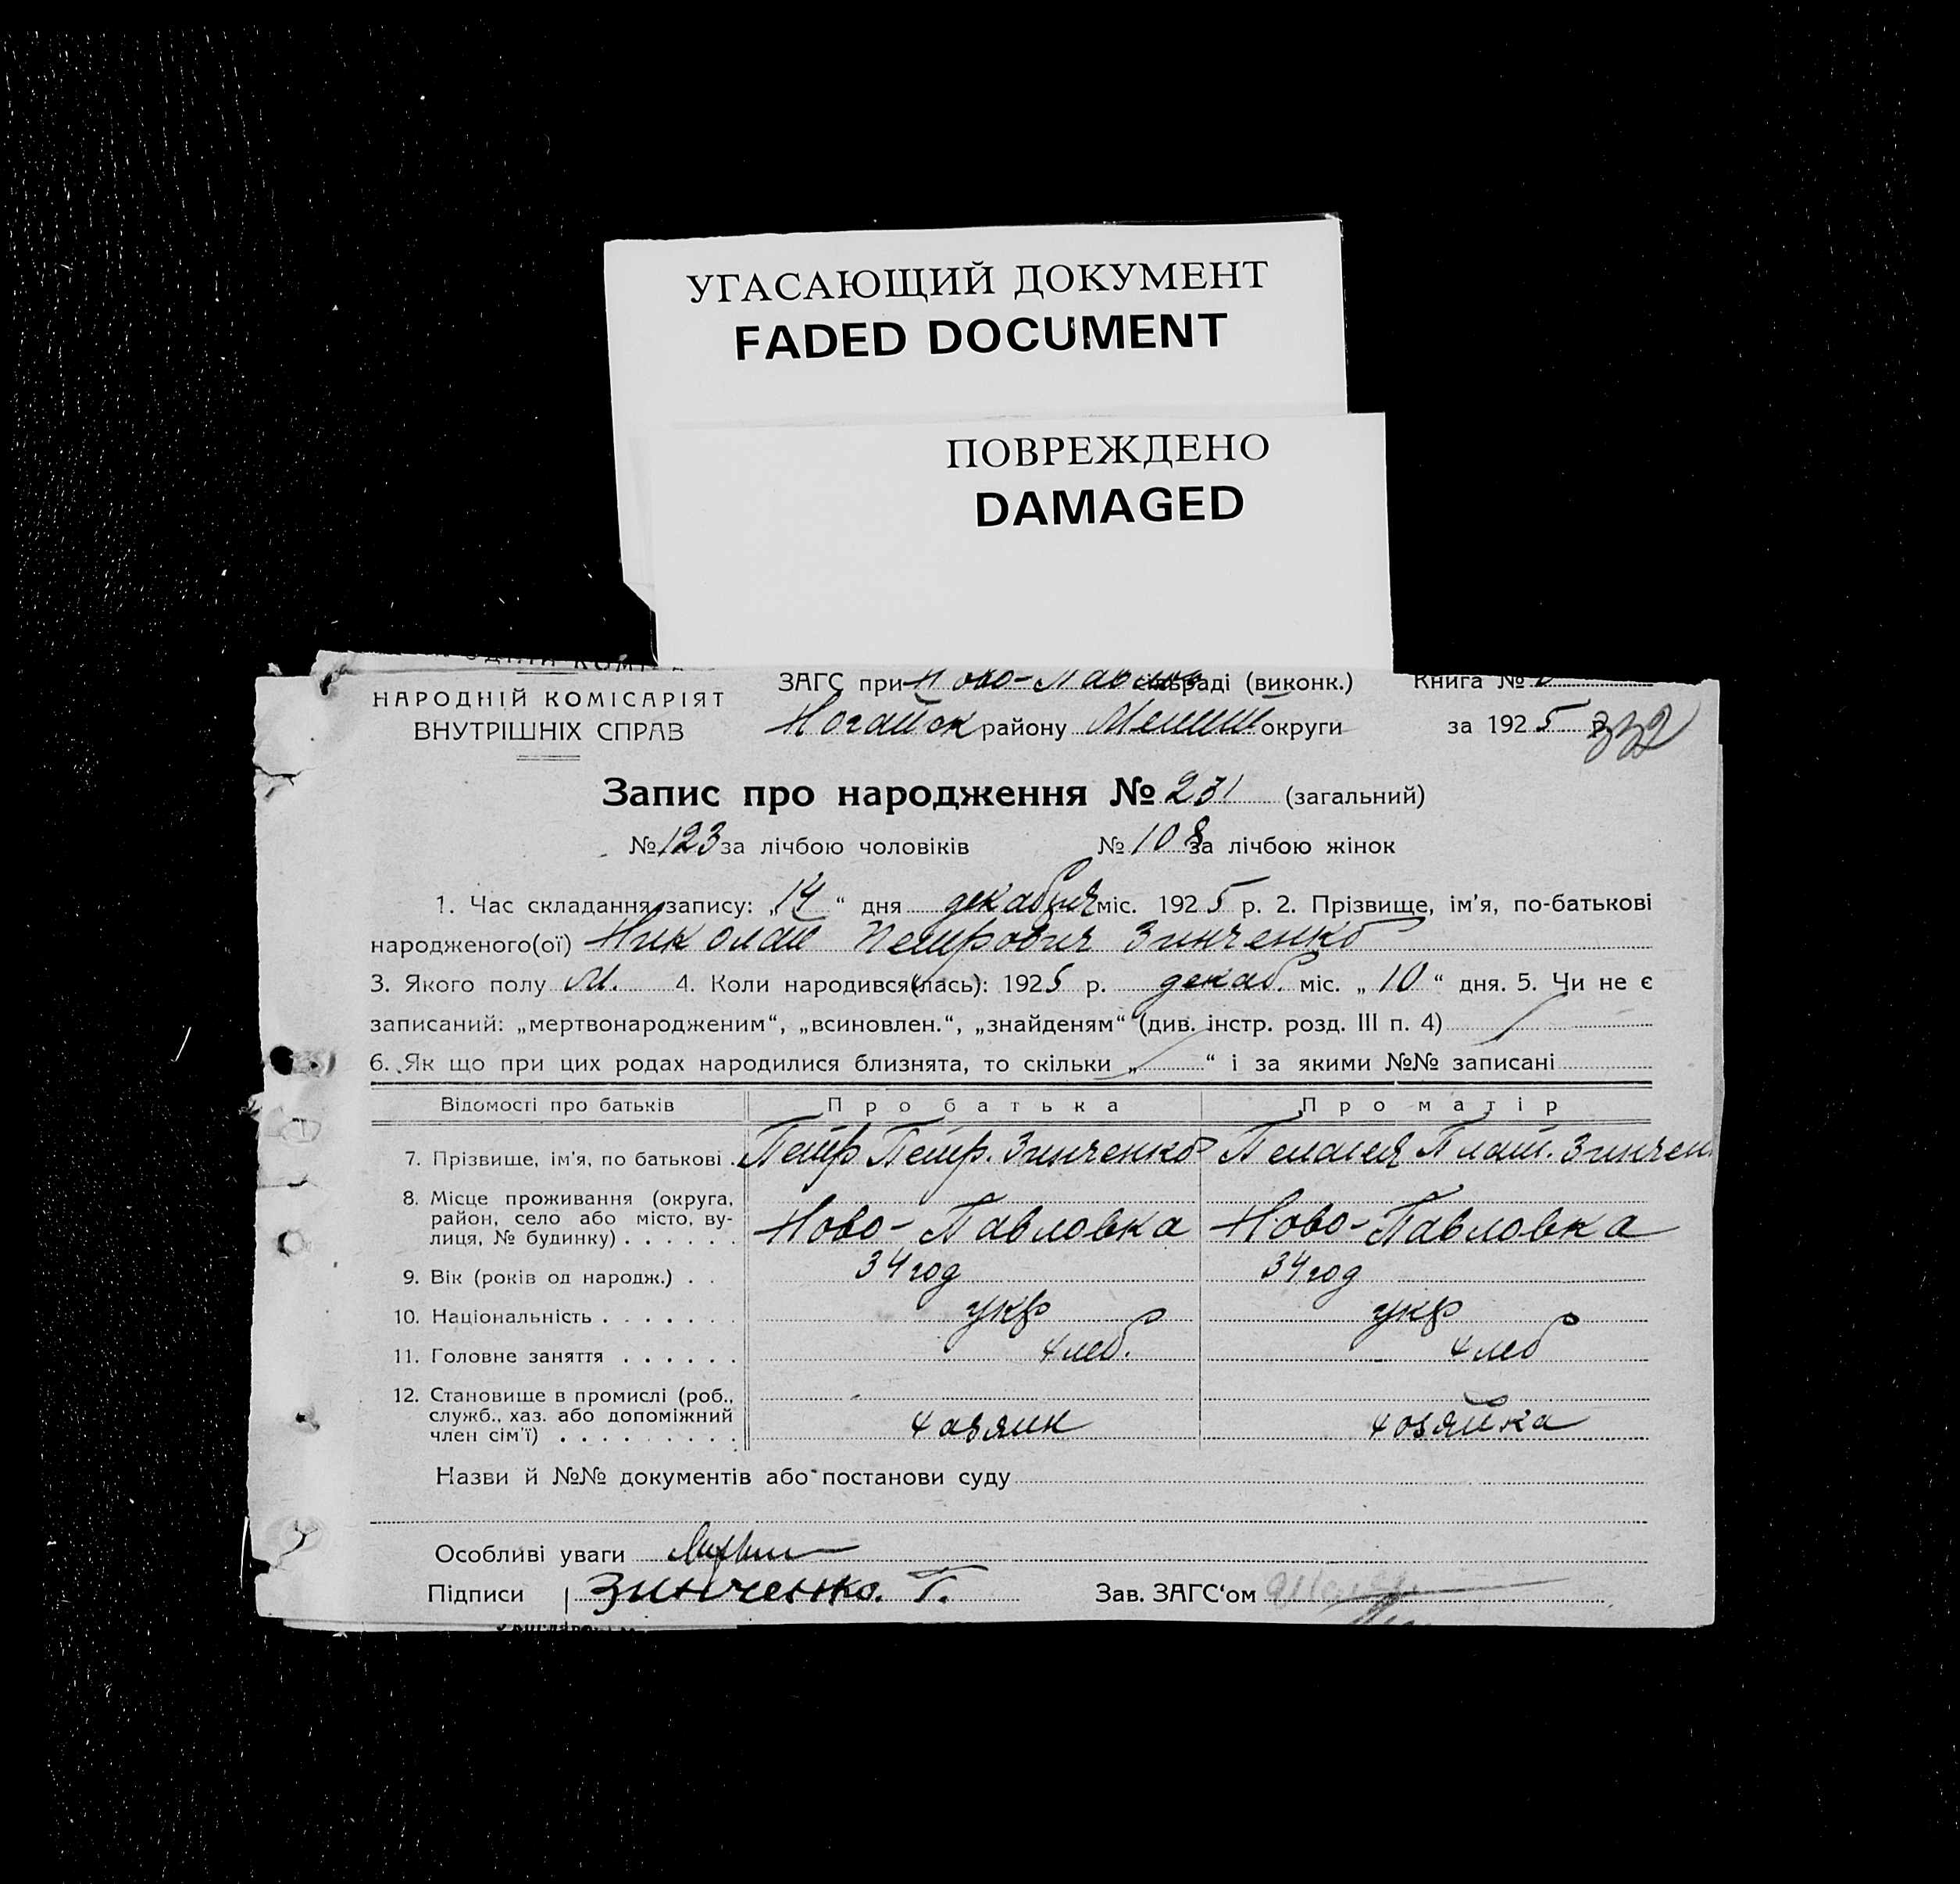 УГАСАЮЩИЙ ДОКУМЕНТ
FADED DOCUMENT
ПОВРЕЖДЕНО
DAMAGED
НАРОДНІЙ КОМІСАРІЯТ
ВНУТРІШНІХ СПРАВ
ЗАГС при Ново-Павлов раді (виконк.) Книга №
Ногайск району Мелит округи за 1925 р. 332
Запис про народження № 231 (загальний)
№ 123 за лічбою чоловіків № 108 за лічбою жінок
1. Час складання запису: „14“ дня декабря міс. 1925 р. 2. Прізвище, ім'я, по-батькові
народженого(ої) Николай Петрович Зинченко
3. Якого полу М. 4. Коли народився(лась): 1925 р. декаб. міс. „10“ дня. 5. Чи не є
записаний: „мертвонародженим“, „всиновлен.“, „знайденям“ (див. інстр. розд. III п. 4)
6. Як що при цих родах народилися близнята, то скільки „ “ і за якими №№ записані
Відомості про батьків Про батька Про матір
7. Прізвище, ім'я, по батькові Петр Петр. Зинченко Пелагея Плат. Зинчен
8. Місце проживання (округа,
район, село або місто, ву-
лиця, № будинку) . . . . . . Ново-Павловка Ново-Павловка
9. Вік (років од народж.) . . 34 год 34 год
10. Національність . . . . . . . укр укр
11. Головне заняття . . . . . . хлеб. хлеб
12. Становище в промислі (роб.,
служб., хаз. або допоміжний
член сім'ї) . . . . . . . . . хозяин хозяйка
Назви й №№ документів або постанови суду
Особливі уваги
Підписи Зинченко. П.
Зав. ЗАГС'ом